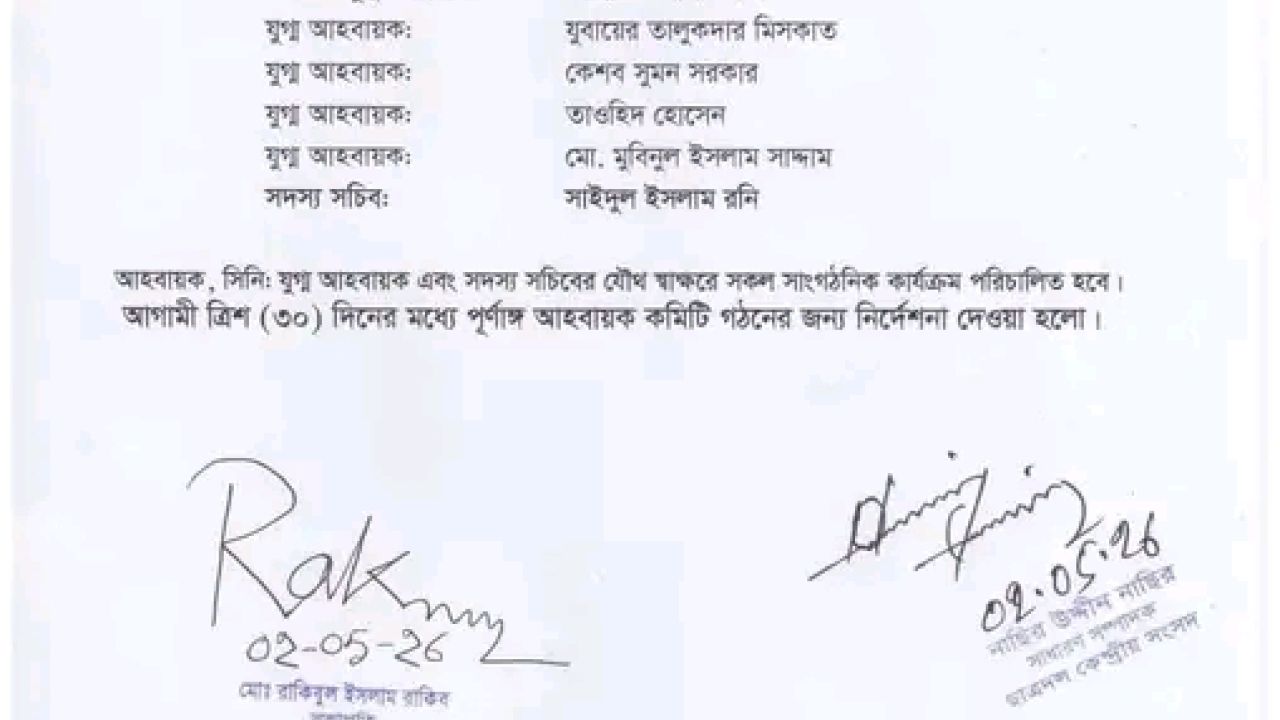 যুগ্ম আহবায়ক: যুবায়ের তালুকদার মিসকাত
যুগ্ম আহবায়ক: কেশব সুমন সরকার
যুগ্ম আহবায়ক: তাওহিদ হোসেন
যুগ্ম আহবায়ক: মো. মুবিনুল ইসলাম সাদ্দাম
সদস্য সচিব: সাইদুল ইসলাম রনি
আহবায়ক, সিনি: যুগ্ম আহবায়ক এবং সদস্য সচিবের যৌথ স্বাক্ষরে সকল সাংগঠনিক কার্যক্রম পরিচালিত হবে।
আগামী ত্রিশ (৩০) দিনের মধ্যে পূর্ণাঙ্গ আহবায়ক কমিটি গঠনের জন্য নির্দেশনা দেওয়া হলো।
02-05-26
মোঃ রাকিবুল ইসলাম রাকিব
02.05.26
নাছির উদ্দীন নাছির
সাধারণ সম্পাদক
ছাত্রদল কেন্দ্রীয় সংসদ